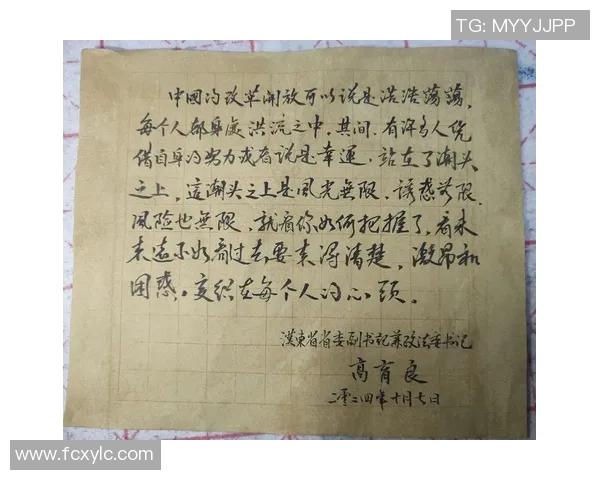 TG: MYYJJPP
中國的改革開放可以说是浩浩荡蕩,
每个人都身處洪流之中。其间,有许多人凭
借自身的努力或者说是幸運,站在了潮头
之上,這潮头之上是風光無限,诱惑无限,
風险也無限,就看你如何把握了,看未
来远不如看过去要来得清楚,激昂和
困惑,交织在每个人的心头。
漢東省省委副书記兼政法委书记
高育良
二零二四年十月七日
www.fcxylc.com